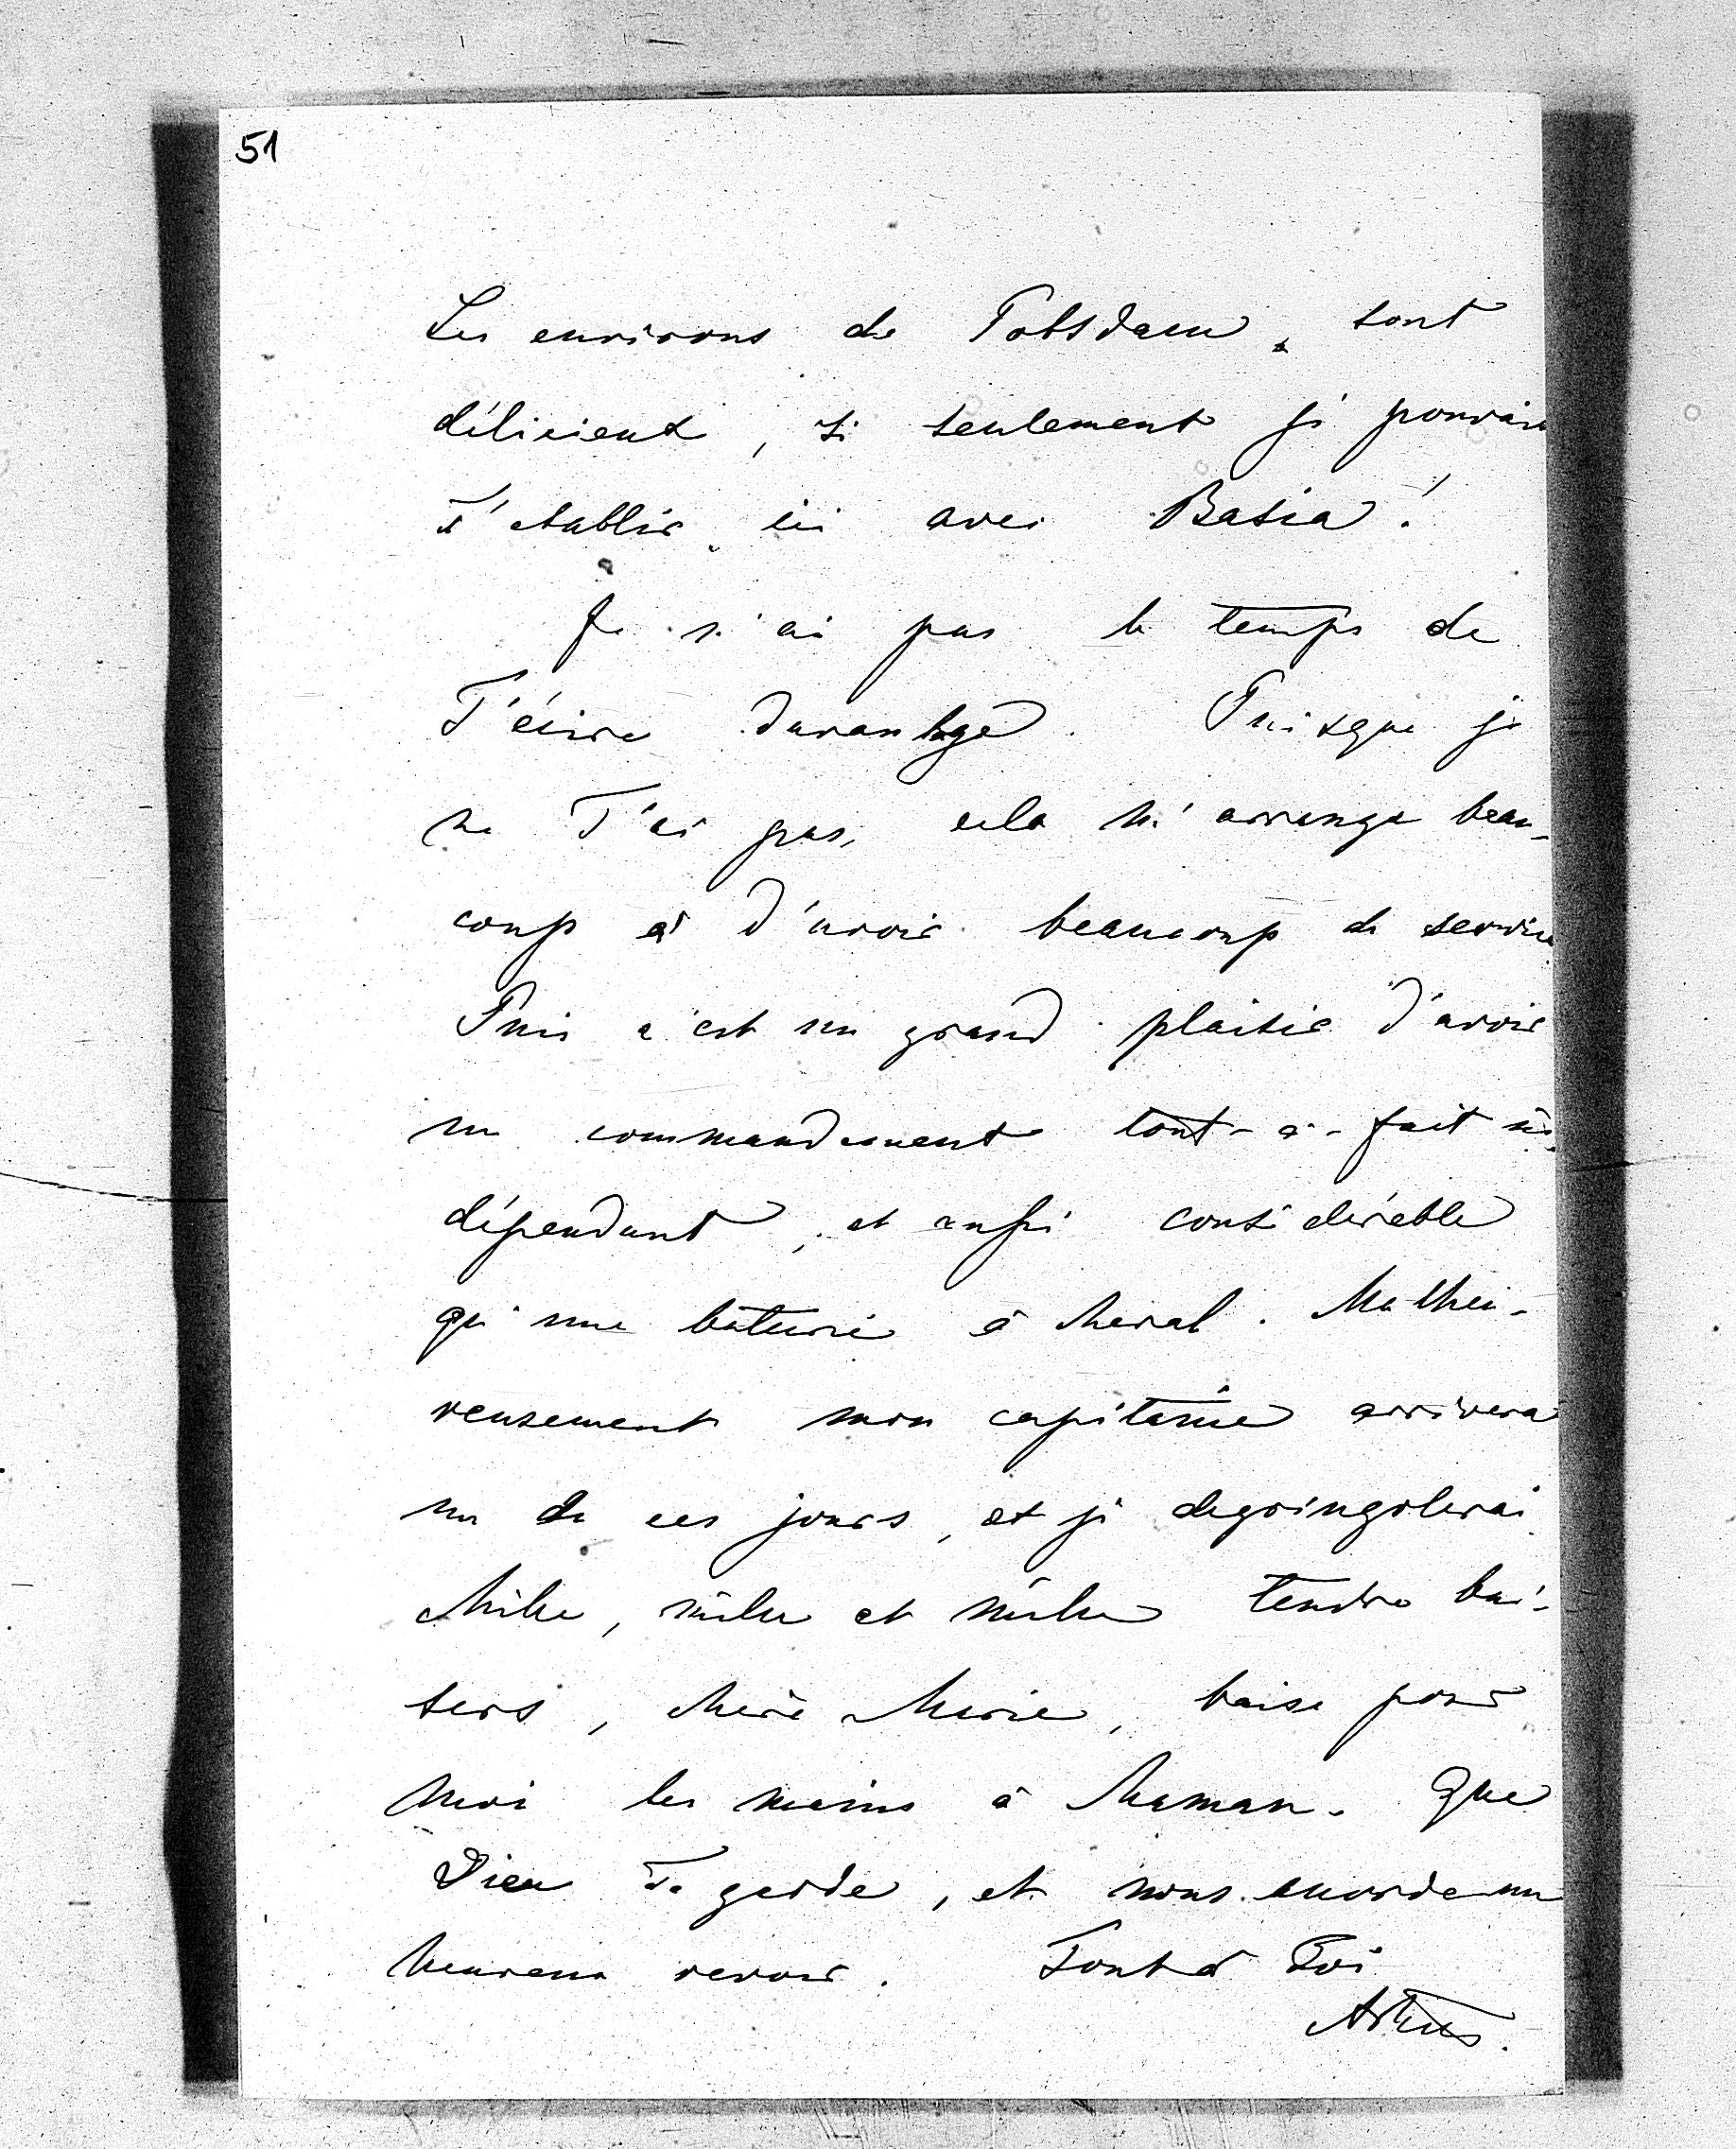 51
Les environs de Potsdam, sont
délicieux, si seulement je pouvais
T'établir ici avec Basia!
Je n'ai pas le temps de
T'écrire davantage. Puisque je
ne T'ai pas, cela m'arrange beau-
coup d'avoir beaucoup de service
Puis c'est un grand plaisir d'avoir
un commandement tout-à-fait in-
dépendant, et aussi considérable
qu'une batterie à cheval. Malheu-
reusement mon capitaine arrivera
un de ces jours, et je degringolerai
Mille, mille et mille tendre bai-
sers, chère Marie, baise pour
moi les mains à Maman. Que
Dieu Te garde, et nous accorde un
heureux revoir. Tout à Toi